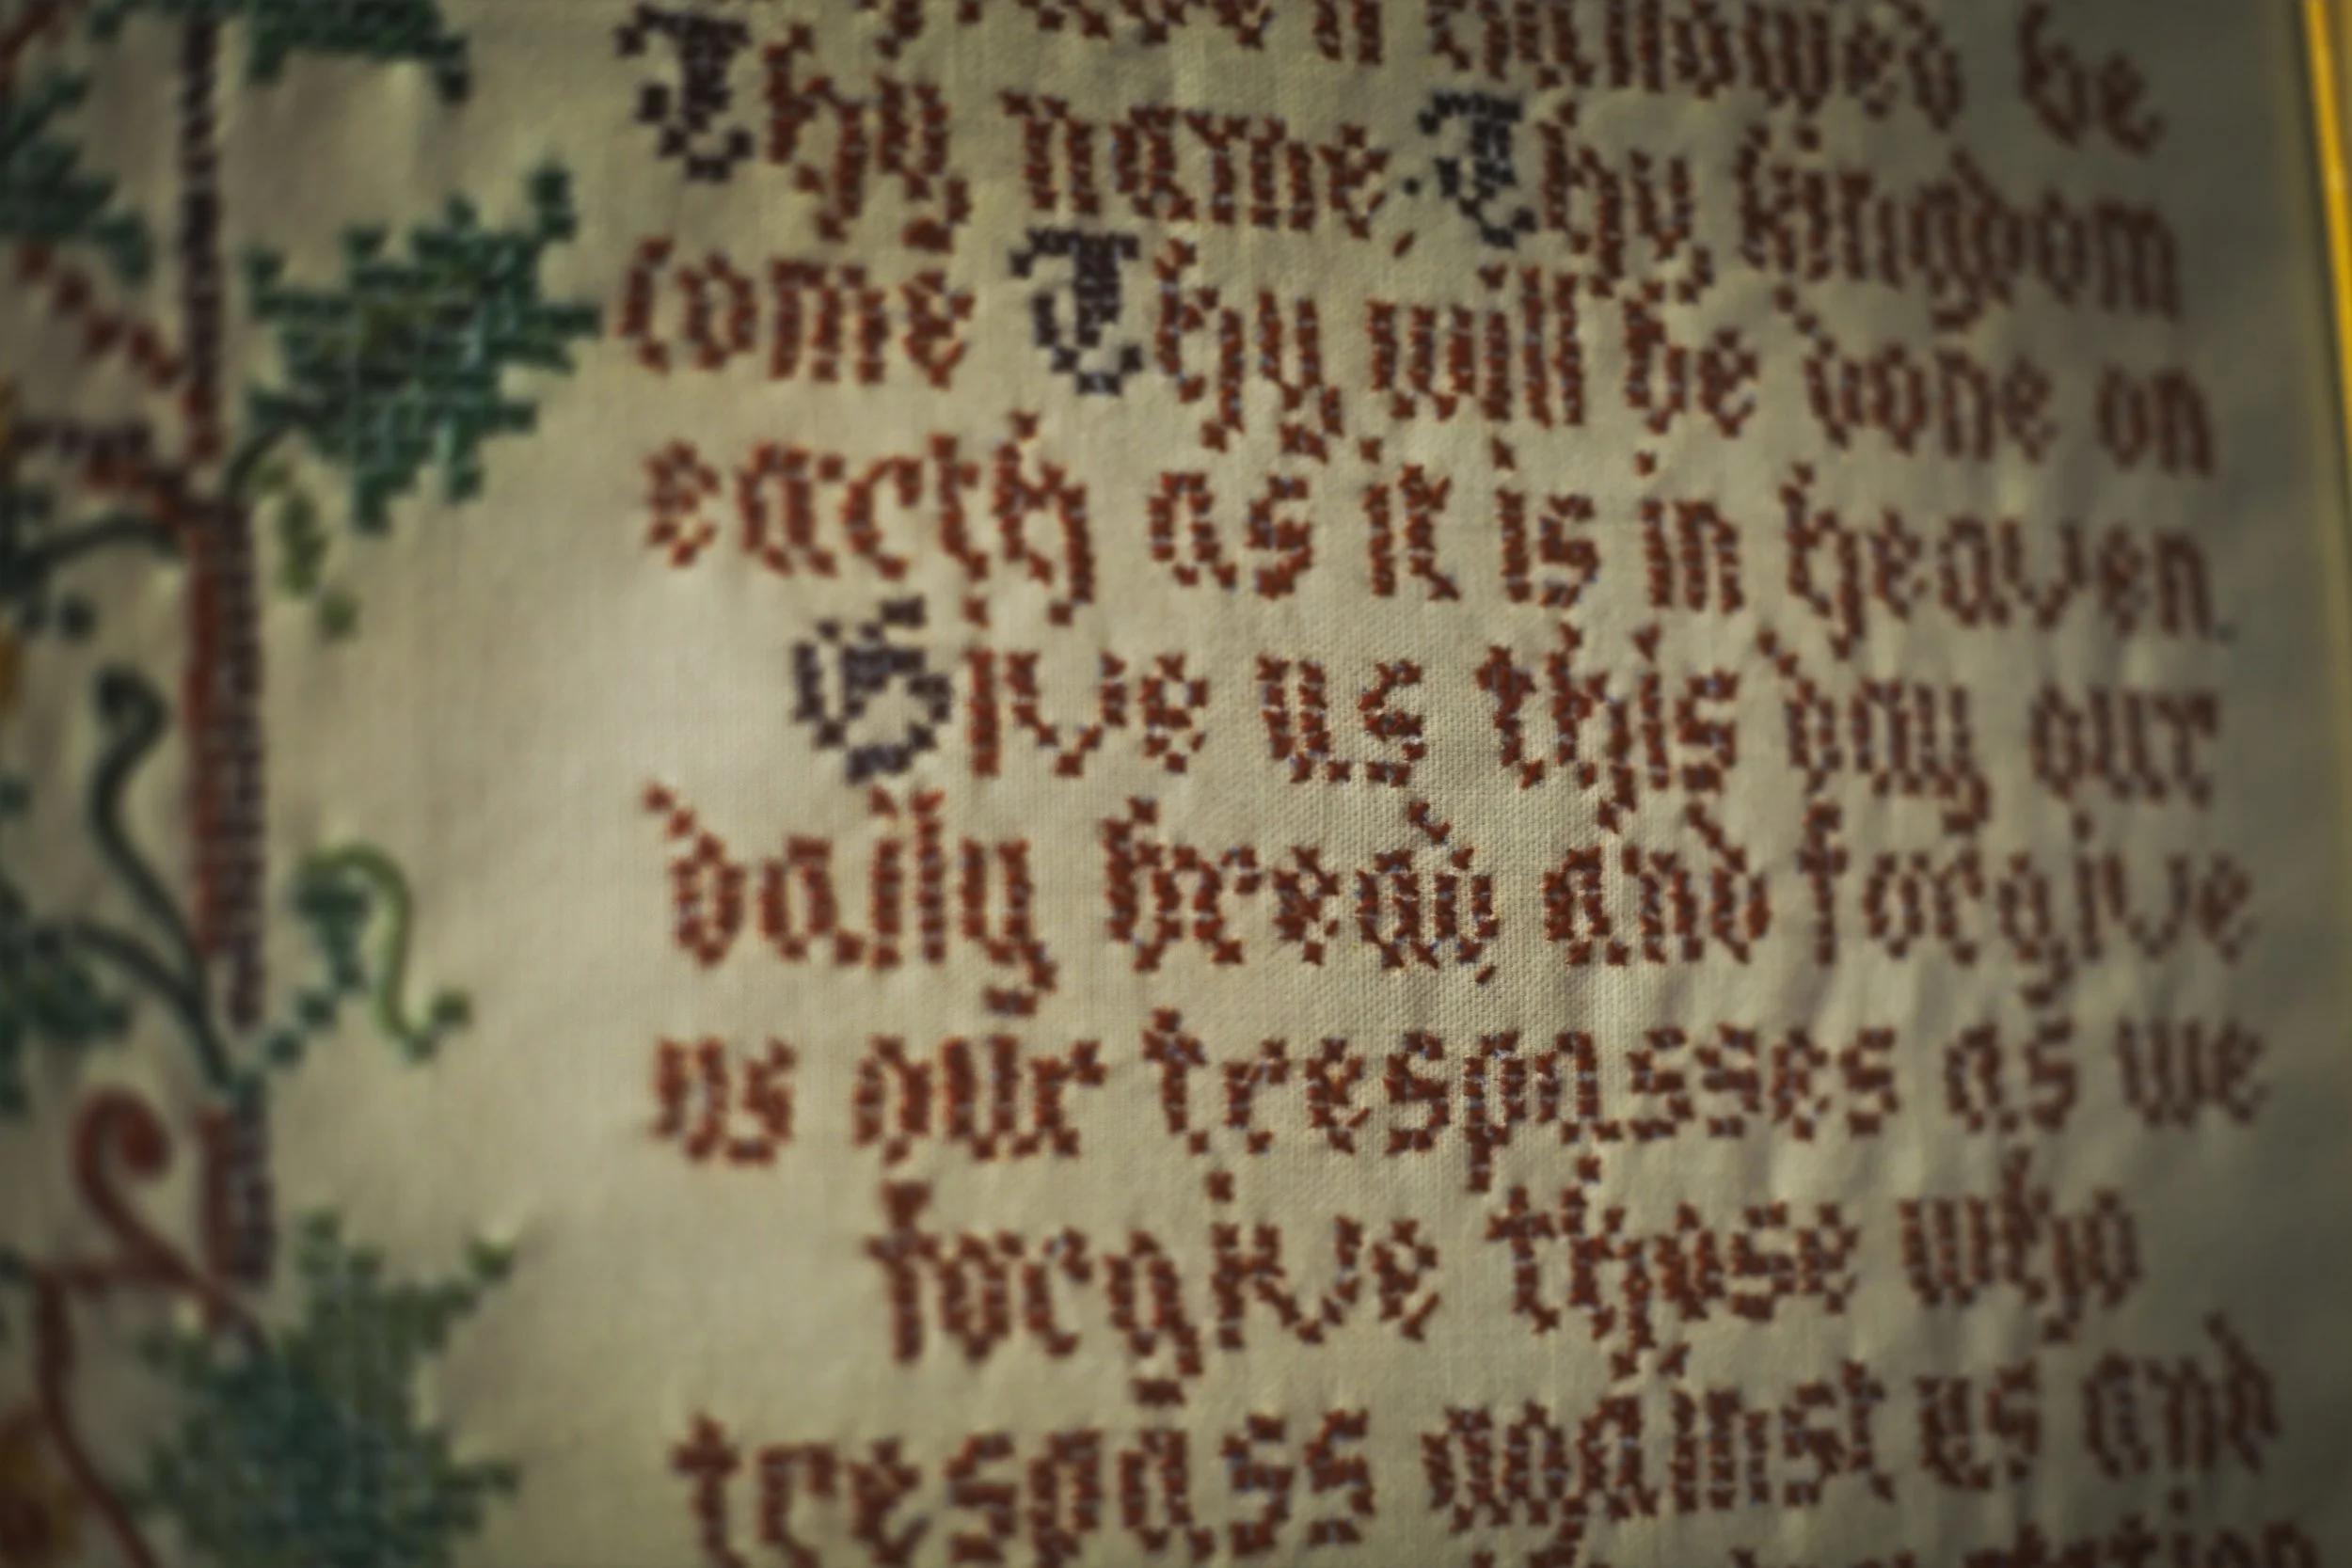 hallowed be
Thy name. Thy kingdom
come Thy will be done on
earth as it is in heaven.
Give us this day our
daily bread, and forgive
us our trespasses as we
forgive those who
trespass against us and